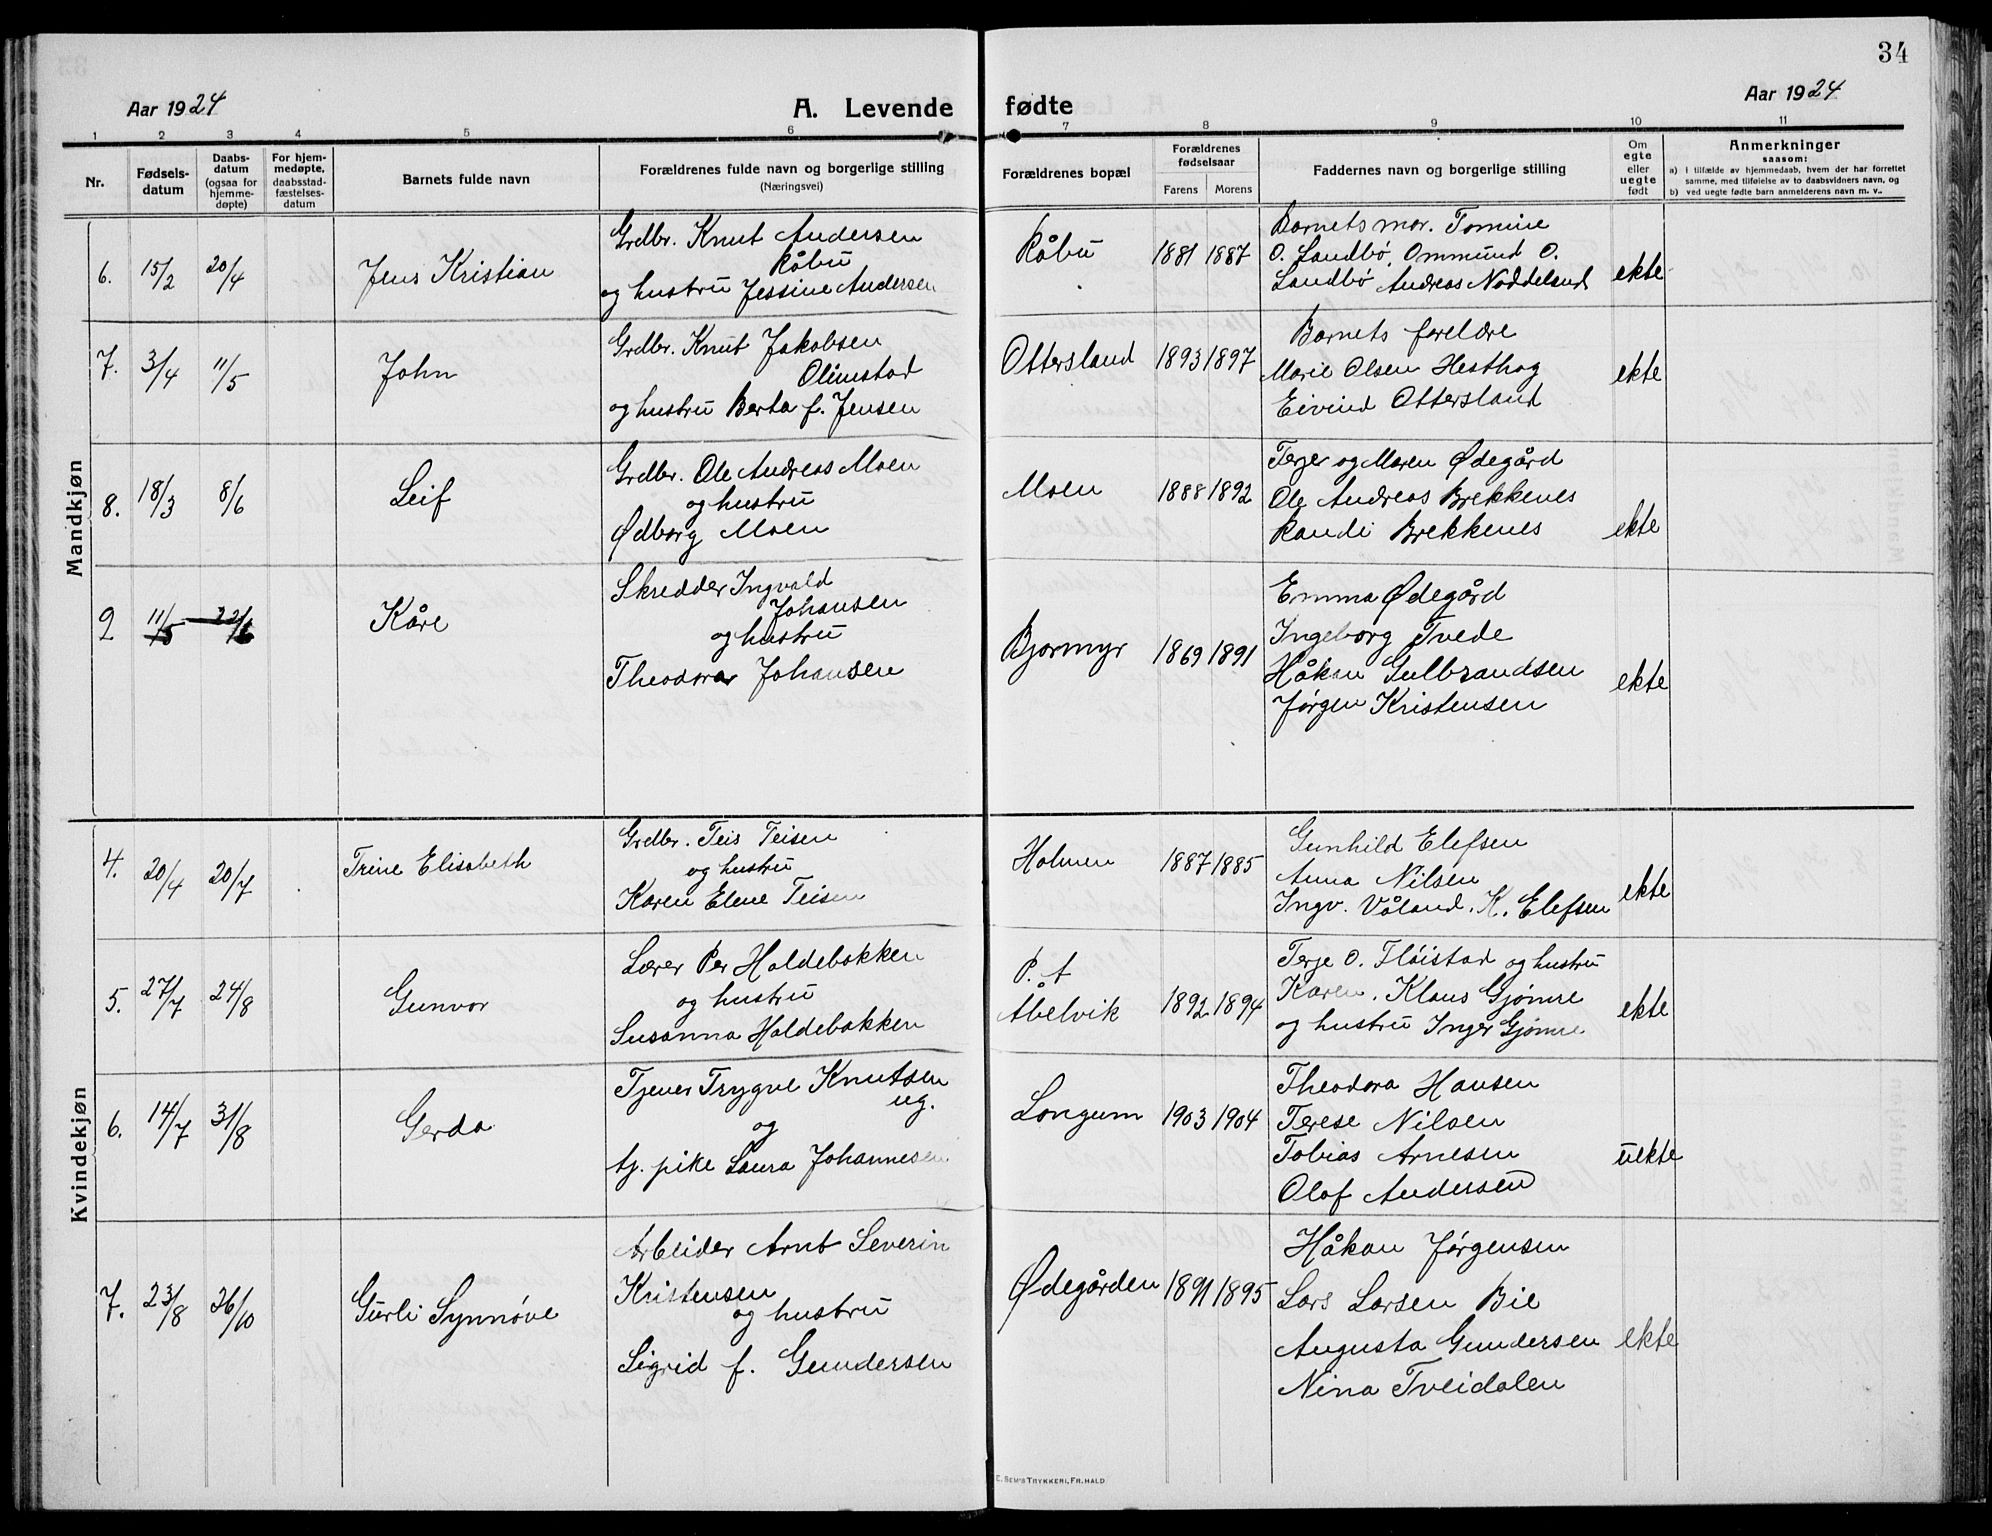 34
Aar 1924
A. Levende fødte
Aar 1924
1 2 3 4 5 6 7 8 9 10 11
Nr.
Fødsels-
datum
Daabs-
datum
(ogsaa for
hjemme-
døpte)
For hjem-
medøpte,
daabsstad-
fæstelses-
datum
Barnets fulde navn
Forældrenes fulde navn og borgerlige stilling
(Næringsvei)
Forældrenes bopæl
Forældrenes
fødselsaar
Farens Morens
Faddernes navn og borgerlige stilling
Om
egte
eller
uegte
født
Anmerkninger
saasom:
a) I tilfælde av hjemmedaab, hvem der har forrettet
samme, med tilføielse av to daabsvidners navn, og
b) ved uegte fødte barn anmelderens navn m. v..
Mandkjøn
6. 15/2 20/4 Jens Kristian
Grdbr. Knut Andersen
Råbu
og hustru Jessine Andersen
Råbu 1881 1887
Barnets mor. Tomine
O. Landbø, Ommund O.
Landbø Andreas Noddeland
ekte
7. 3/4 11/5 John
Grdbr. Knut Jakobsen
Olimstad
og hustru Berta f. Jensen
Ottersland 1893 1897
Barnets forelære
Marie Olsen Hesthag
Eivind Ottersland
ekte
8. 18/3 8/6 Leif
Grdbr. Ole Andreas Moen
og hustru
Ødborg Moen
Moen 1888 1892
Terje og Maren Ødegård
Ole Andreas Brekkenes
Randi Brekkenes
ekte
9 11/5 22/6 Kåre
Skredder Ingvald
Johansen
og hustru
Theodora Johansen
Bjormyr 1869 1891
Emma Ødegård
Ingeborg Tvede
Håkan Gulbrandsen
Jørgen Kristensen
ekte
Kvindekjøn
4. 20/4 20/7 Trine Elisabeth
Grdbr. Teis Teisen
og hustru
Karen Elene Teisen
Holmen 1887 1885
Gunhild Elefsen
Anna Nilsen
Ingv. Våland, K. Elefsen
ekte
5. 27/7 24/8 Gunvor
Lærer Per Haldebakken
og hustru
Susanna Haldebakken
P. t
Åbelvik 1892 1894
Terje O. Fløistad og hustru
Karen. Klaus Gjømre
og hustru Inger Gjømre
ekte
6. 14/7 31/8 Gerda
Tjener Trygve Knutsen
ug.
og
tj. pike Laura Johannesen
Longum 1903 1904
Theodora Hansen
Terese Nilsen
Tobias Arnesen
Olaf Andersen
uekte
7. 23/8 26/10 Gurli Synnøve
Arbeider Arnt Severin
Kristensen
og hustru
Sigrid f. Gundersen
Ødegården 1891 1895
Håkan Jørgensen
Lars Larsen Bie
Augusta Gundersen
Nina Tveidalen
ekte
E. SEM'S TRYKKERI, FR. HALD